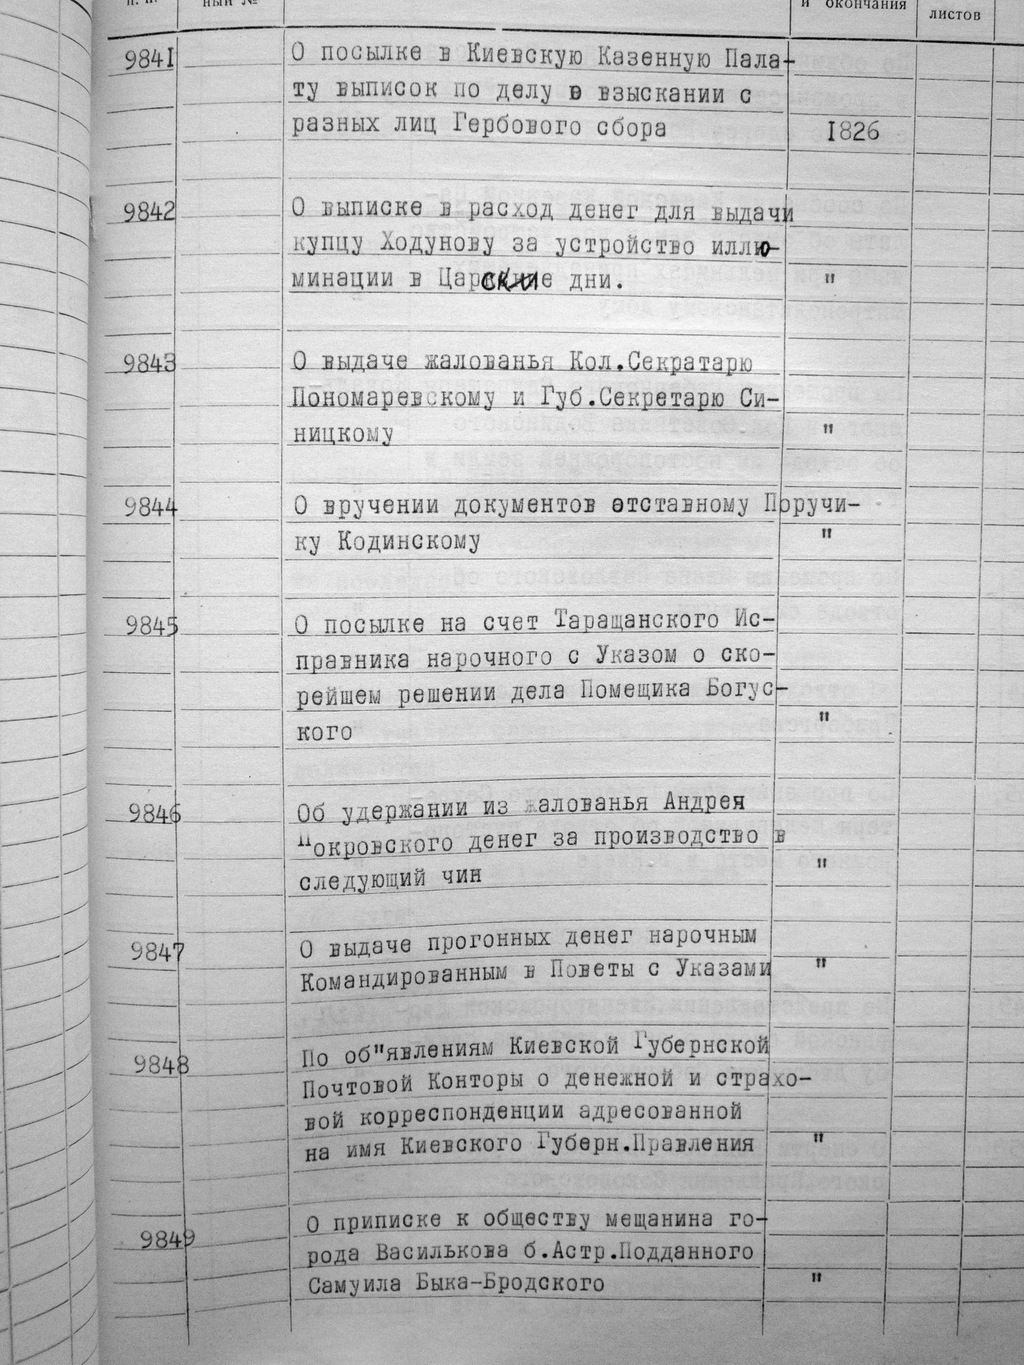 п. п.
ный №
и окончания
листов
9841
О посылке в Киевскую Казенную Пала-
ту выписок по делу о взыскании с
разных лиц Гербового сбора
1826
9842
О выписке в расход денег для выдачи
купцу Ходунову за устройство иллю-
минации в Царские дни.
"
9843
О выдаче жалованья Кол.Секратарю
Пономаревскому и Губ.Секретарю Си-
ницкому
"
9844
О вручении документов отставному Поручи-
ку Кодинскому
"
9845
О посылке на счет Таращанского Ис-
правника нарочного с Указом о ско-
рейшем решении дела Помещика Богус-
кого
"
9846
Об удержании из жалованья Андрея
Покровского денег за производство в
следующий чин
"
9847
О выдаче прогонных денег нарочным
Командированным в Поветы с Указами
"
9848
По об"явлениям Киевской Губернской
Почтовой Конторы о денежной и страхо-
вой корреспонденции адресованной
на имя Киевского Губерн.Правления
"
9849
О приписке к обществу мещанина го-
рода Василькова б.Астр.Подданного
Самуила Быка-Бродского
"